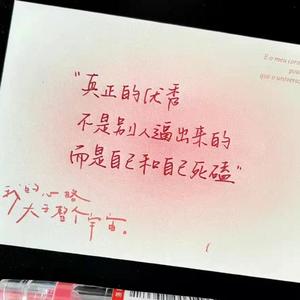 E o meu cora
pou
que o universo
“真正的优秀
不是别人逼出来的
而是自己和自己死磕”
我的心略
大于整个
宇宙。